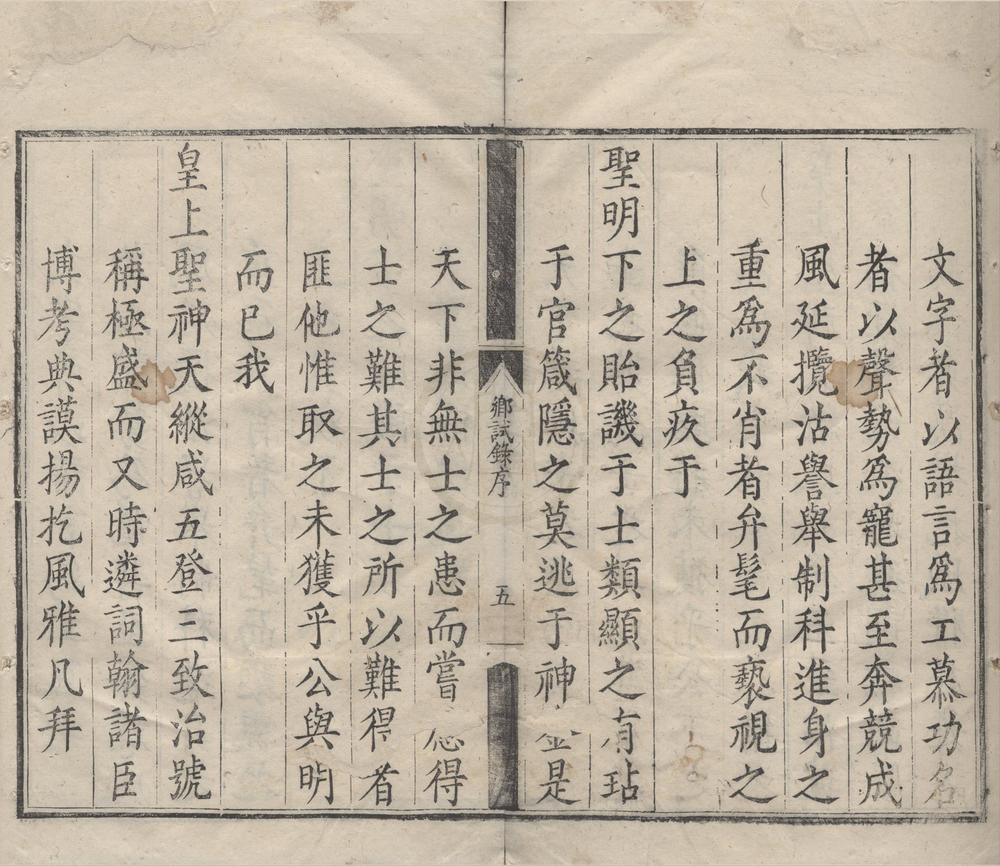 文字者以語言爲工慕功名
者以聲勢爲寵甚至奔競成
風延攬沽譽舉制科進身之
重爲不肖者弁髦而褻視之
上之負疚于
聖明下之貽譏于士類顯之有玷
于官箴隱之莫逃于神是
鄉試錄序
五
天下非無士之患而嘗得
士之難其士之所以難得者
匪他惟取之未獲乎公與明
而已我
皇上聖神天縱咸五登三致治號
稱極盛而又時遴詞翰諸臣
博考典謨揚扢風雅凡拜